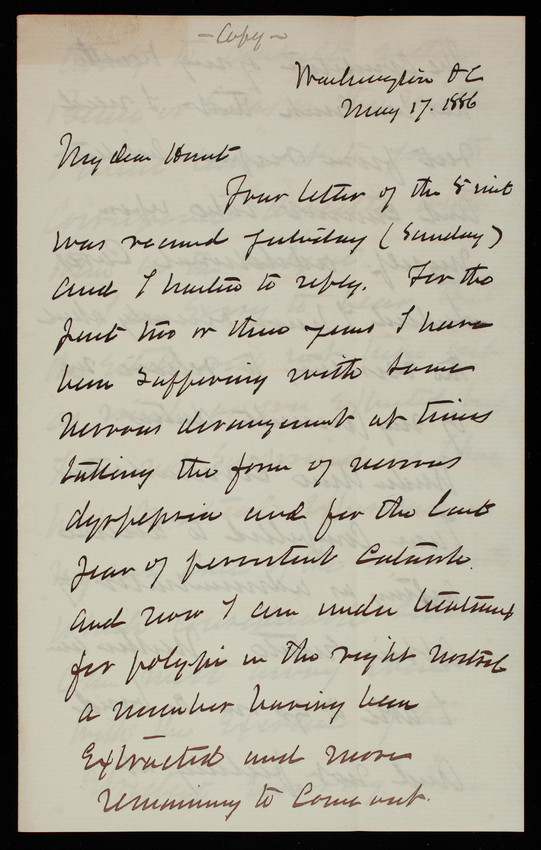 - Copy -
Washington DC
May 17. 1886
My dear Hunt
Your letter of the 8 inst
was received yesterday (Sunday)
and I hasten to reply. For the
past two or three years I have
been suffering with some
nervous derangement at times
taking the form of nervous
dyspepsia and for the last
year of persistent catarrh.
And now I am under treatment
for polypi in the right nostril
a number having been
extracted and more
remaining to come out.